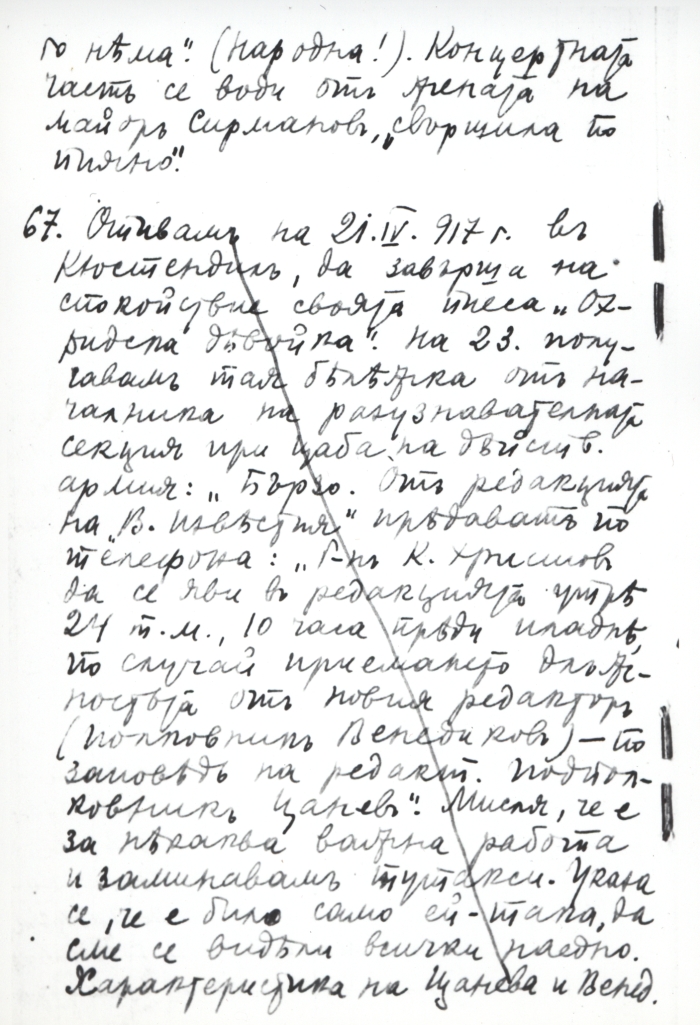 го нѣма". (народна!). Концертната
часть се води отъ жената на
майоръ Сирмановъ, "сворщика по
пияно".
67. Отивамъ на 21.IV.917 г. въ
Кюстендилъ, да завърша на
спокойствие своята пиеса „Ох-
ридска дѣвойка". На 23. полу-
чавамъ тая бѣлѣжка отъ на-
чалника на разузнавателната
секция при щаба на дѣйств.
армия: „Бързо. Отъ редакцията
на „В. Известия" прѣдаватъ по
телефона: „Г-нъ К. Христовъ
да се яви въ редакцията утрѣ
24 т.м., 10 часа прѣди пладнѣ,
по случай приемането длъж-
ностьта отъ новия редакторъ
(полковникъ Венедиковъ) — по
заповѣдь на редакт. подпол-
ковникъ Цаневъ". Мисля, че е
за нѣкаква важна работа
и заминавамъ тутакси. Указа
се, че е било само ей-така, да
сме се видѣли всички наедно.
Характеристика на Цанева и Венед.